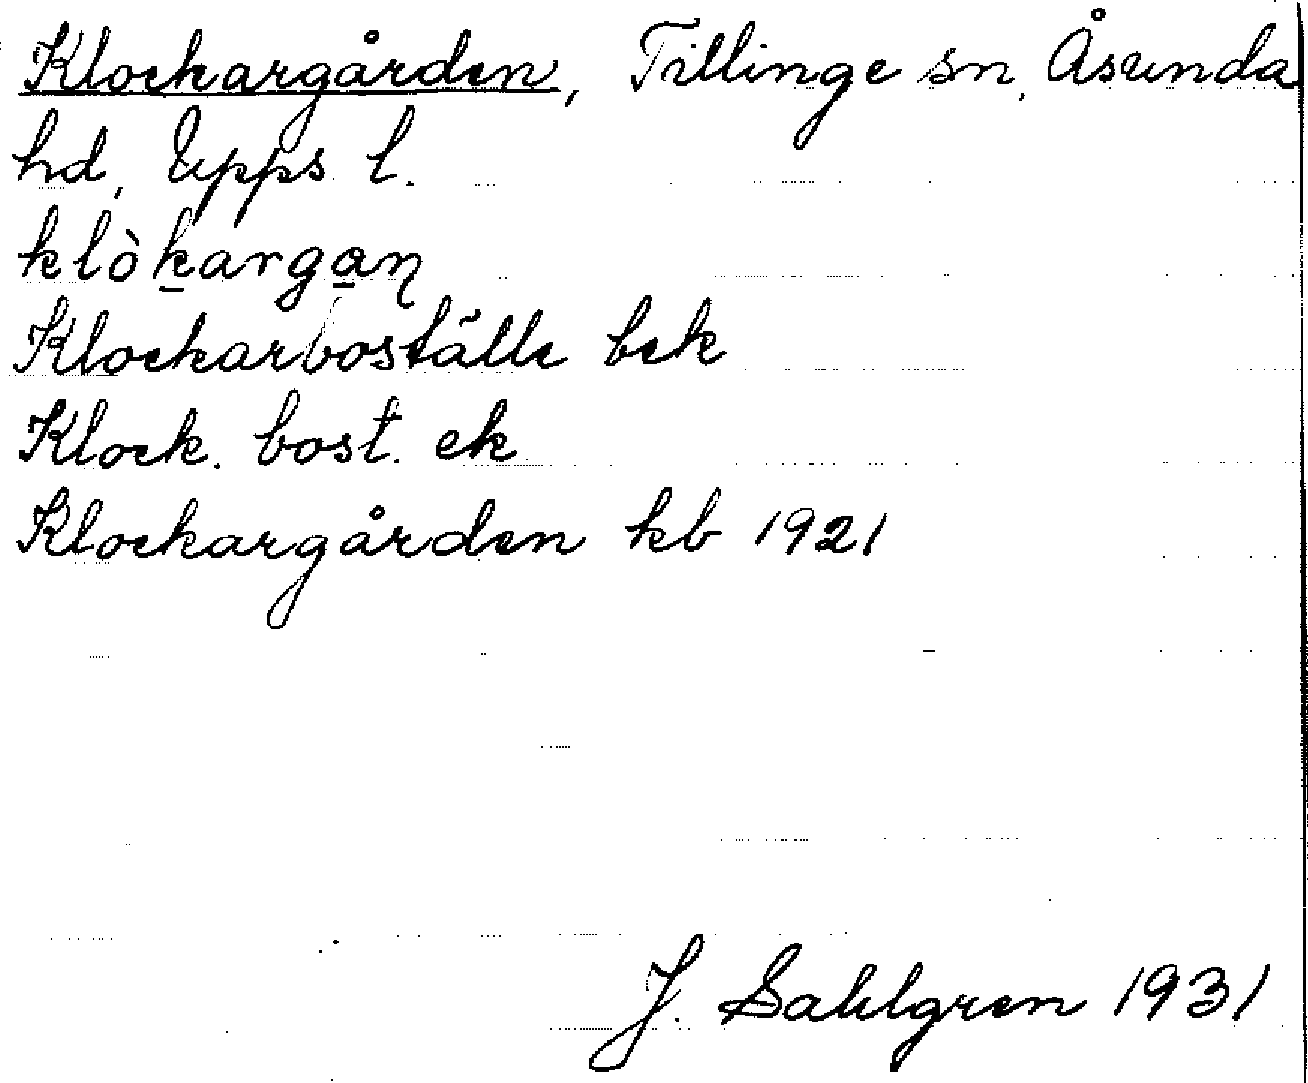 Klockargården, Tillinge sn, Åsunda
hd, Upps l.
klòk̲arga̲ɳ
Klockarboställe bek
Klock. bost. ek
Klockargården kb 1921
J. Sahlgren 1931